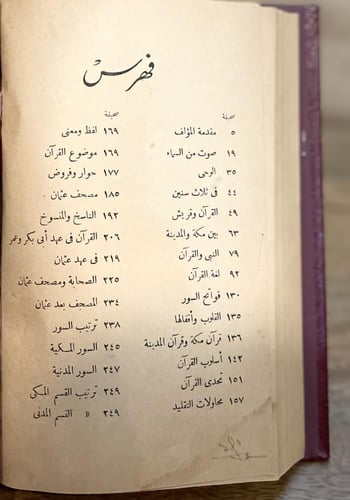 فهرس
صحيفة
٥ مقدمة المؤلف
١٩ صوت من السماء
٣٥ الوحى
٤٤ فى ثلاث سنين
٤٩ القرآن وقريش
٦٣ بين مكة والمدينة
٧٩ النبى والقرآن
٩٢ لغة القرآن
١٣٠ فواتح السور
١٣٥ القلوب وأقفالها
١٣٦ قرآن مكة وقرآن المدينة
١٤٢ أسلوب القرآن
١٥١ تحدى القرآن
١٥٧ محاولات التقليد
صحيفة
١٦٩ لفظ ومعنى
١٦٩ موضوع القرآن
١٧٧ حوار وفروض
١٨٥ مصحف عثمان
١٩٢ الناسخ والمنسوخ
٢٠٦ القرآن فى عهد أبى بكر وعمر
٢١٩ فى عهد عثمان
٢٢٥ الصحابة ومصحف عثمان
٢٣٤ المصحف بعد عثمان
٢٣٨ ترتيب السور
٢٤٥ السور المكية
٢٤٧ السور المدنية
٢٤٩ ترتيب القسم المكى
٢٤٩ » القسم المدنى